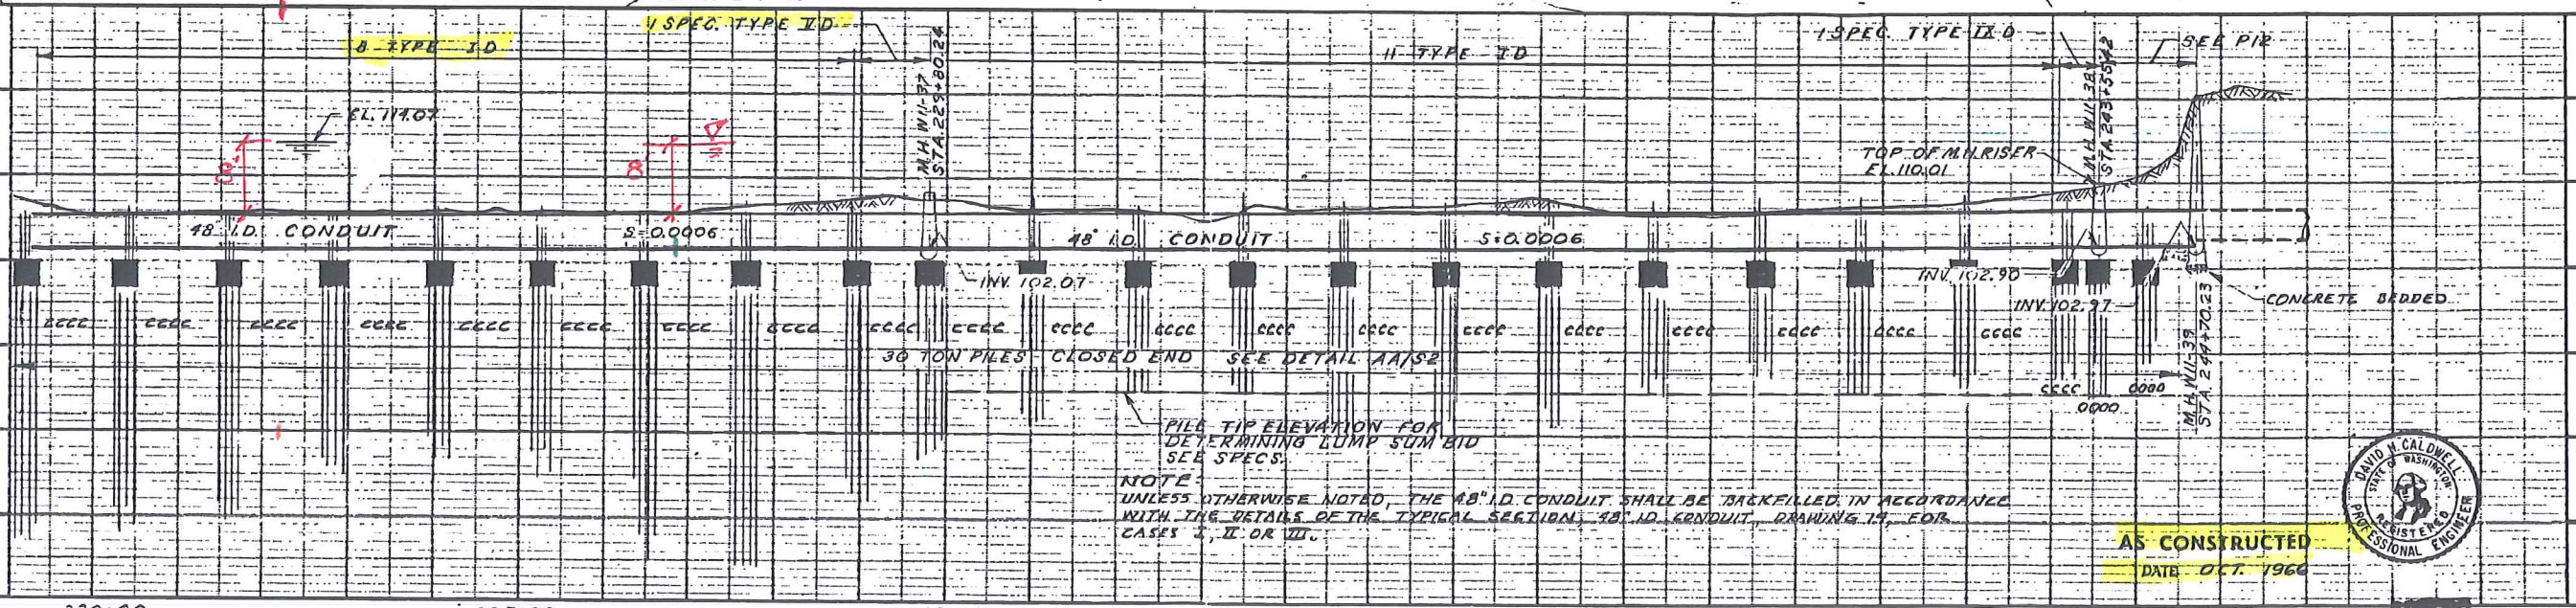 1 SPEC. TYPE VD
8 TYPE ID
M.H. W11-37
STA. 229+80.24
11 TYPE ID
1 SPEC. TYPE IXD
M.H. W11-38
SEE P12
EL. 114.07
8'
8'
TOP OF M.H. RISER
EL. 110.01
48" I.D. CONDUIT
S=0.0006
48" I.D. CONDUIT
S=0.0006
INV. 102.07
INV. 102.90
INV. 102.97
CONCRETE BEDDED
cccc cccc cccc cccc cccc cccc cccc cccc cccc cccc cccc cccc cccc cccc cccc cccc cccc cccc cccc cccc
30 TON PILES CLOSED END SEE DETAIL AA/S2
M.H. W11-39
STA. 244+70.23
cccc
0000
0000
PILE TIP ELEVATION FOR
DETERMINING LUMP SUM BID
SEE SPECS.
NOTE:
UNLESS OTHERWISE NOTED, THE 48" I.D. CONDUIT SHALL BE BACKFILLED IN ACCORDANCE
WITH THE DETAILS OF THE TYPICAL SECTION, 48" I.D. CONDUIT, DRAWING 74, FOR
CASES I, II OR III.
DAVID H. CALDWELL
STATE OF WASHINGTON
REGISTERED
PROFESSIONAL ENGINEER
AS CONSTRUCTED
DATE OCT. 1966